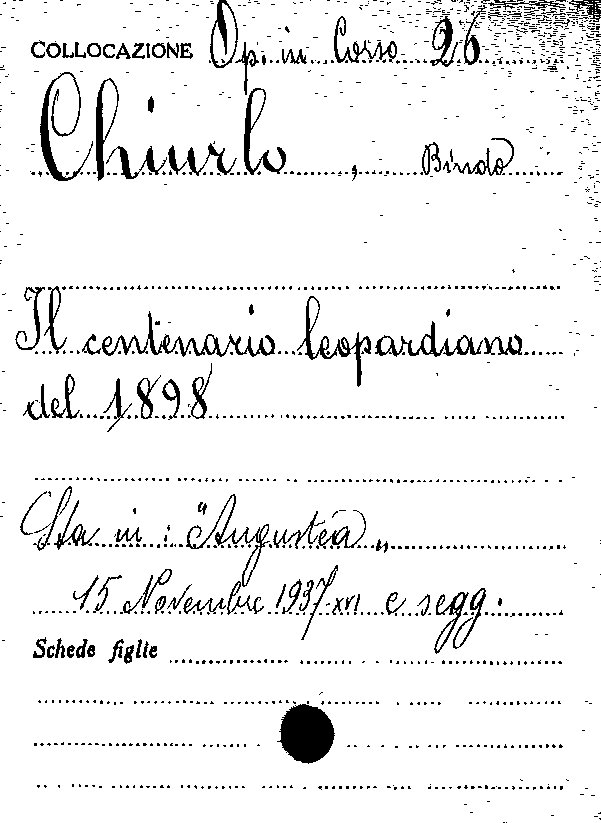 COLLOCAZIONE Op. in Corso 26
Chiurlo, Bindo
Il centenario leopardiano
del 1898
Sta in: "Augustea„
15 Novembre 1937-XVI e segg.
Schede figlie